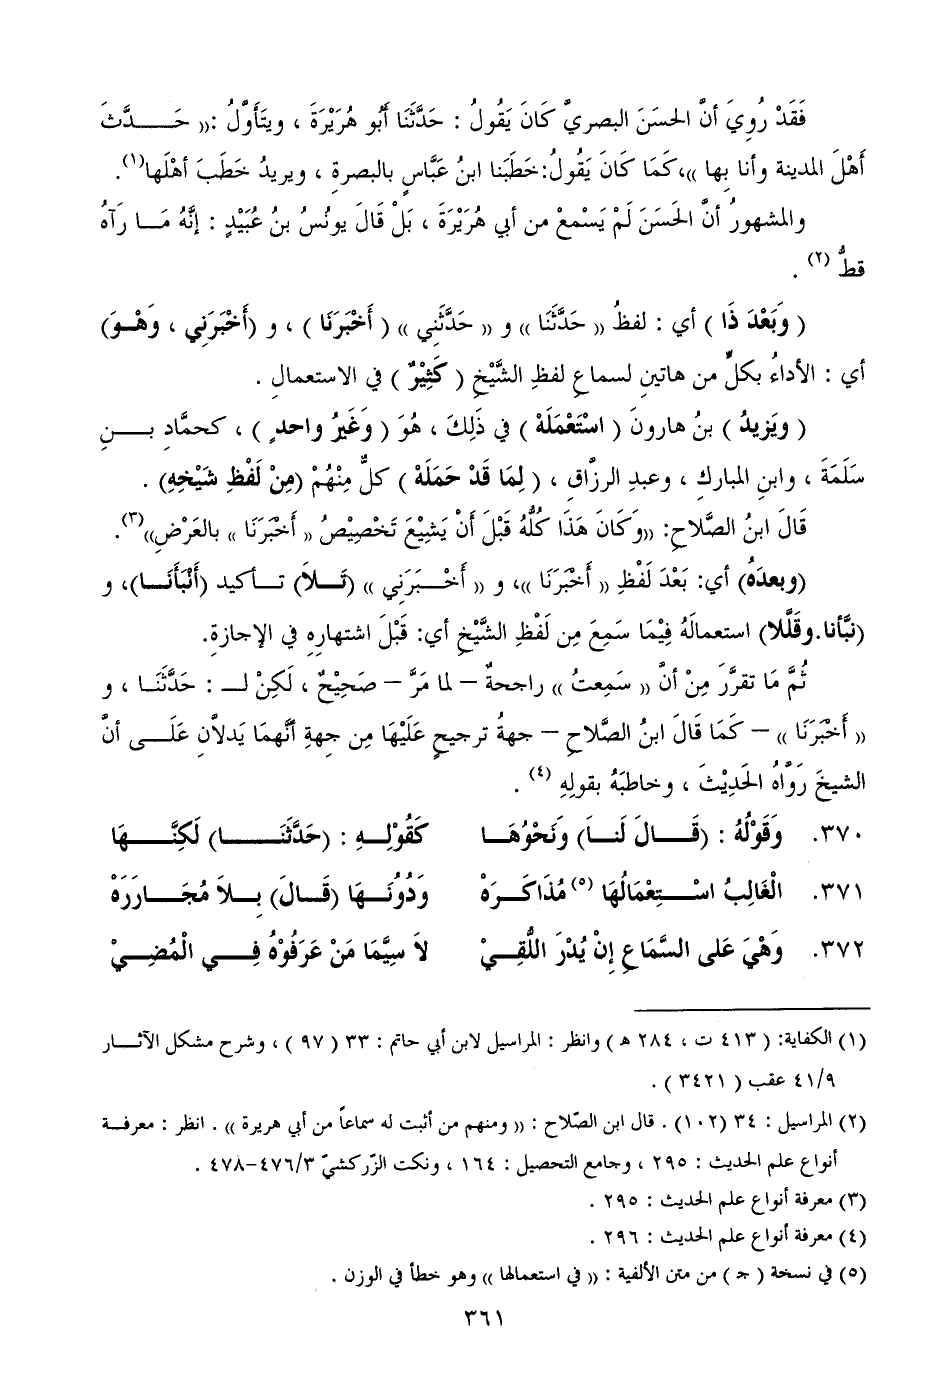 فَقَدْ رُوِيَ أنَّ الحسَنَ البصريَّ كَانَ يَقُولُ : حَدَّثَنَا أَبُو هُرَيْرَةَ ، ويتَأَوَّلُ :(( حَـــدَّثَ
أَهْلَ المدينة وأنا بِها ))،كَمَا كَانَ يَقُولُ:خطَبَنا ابنُ عبَّاسٍ بالبصرةِ ، ويريدُ خَطَبَ أهْلَها(١).
والمشهورُ أنَّ الحَسَنَ لَمْ يَسْمعْ من أبي هُرَيْرَةَ ، بَلْ قَالَ يونُسُ بنُ عُبَيْدٍ : إنَّهُ مَــا رَآهُ
قطُّ (٢) .
( وَبَعْدَ ذَا ) أي : لفظُ (( حَدَّثَنَا )) و (( حَدَّثَنِي )) ( أَخْبَرَنَا ) ، و (أَخْبَرَنِي ، وَهْــوَ)
أي : الأداءُ بكلٍّ من هاتينِ لسماعِ لفظِ الشَّيْخِ ( كَثِيْرٌ ) في الاستعمالِ .
( ويَزيدُ ) بنُ هارونَ ( اسْتَعْمَلَهْ ) في ذَلِكَ ، هُوَ ( وَغَيرُ واحدٍ ) ، كحمَّادِ بـــنِ
سَلَمَةَ ، وابنِ المباركِ ، وعبدِ الرزَّاقِ ، ( لِمَا قَدْ حَمَلَهْ ) كلٌّ مِنْهُمْ (مِنْ لَفْظِ شَيْخِهِ) .
قَالَ ابنُ الصَّلاحِ: ((وَكَانَ هَذَا كُلُّهُ قَبْلَ أَنْ يَشيْعَ تَخْصِيْصُ (( أَخْبَرَنَا )) بالعَرْضِ))(٣).
(وبعدَهُ) أي: بَعْدَ لَفْظِ (( أَخْبَرَنَا ))، و (( أَخْــبَرَنِي )) (تَــلاَ) تــأكيد (أَنْبَأَنَــا)، و
(نَبَّأنا.وقَلَّلا) استعمالَهُ فِيْمَا سَمِعَ مِن لَفْظِ الشَّيْخِ أي: قَبْلَ اشتهارِهِ في الإجازةِ.
ثُمَّ مَا تقرَّرَ مِنْ أنَّ (( سَمِعتُ )) راجحةٌ – لما مَرَّ – صَحِيْحٌ ، لَكِنْ لــ : حَدَّثَنَــا ، و
(( أَخْبَرَنَا )) – كَمَا قَالَ ابنُ الصَّلاحِ – جهةُ ترجيحٍ عَلَيْهَا مِن جهةِ أنَّهما يَدلاَّنِ عَلَــى أنَّ
الشيخَ رَوَّاهُ الحَدِيْثَ ، وخاطبَهُ بقولِهِ (٤) .
٣٧٠. وَقَوْلُهُ : (قَــالَ لَنا) وَنَحْوُهَـا كَقُوْلِــهِ : (حَدَّثَنَــــا) لَكِنَّــــهَا
٣٧١. الْغَالِبُ اسْــتِعْمَالُهَا (٥) مُذَاكَـرَهْ وَدُوْنُــهَا (قَــالَ) بِــلاَ مُجَــارَرَهْ
٣٧٢. وَهْيَ عَلى السَّمَاعِ إنْ يُدْرَ اللُّقِــيْ لاَ سِيَّمَا مَنْ عَرَفُوْهُ فِــي الْمُضِــيْ
(١) الكفاية: ( ٤١٣ ت ، ٢٨٤ هـ ) وانظر : المراسيل لابن أبي حاتم : ٣٣ ( ٩٧ ) ، وشرح مشكل الآثــار
٤١/٩ عقب ( ٣٤٢١ ) .
(٢) المراسيل : ٣٤ (١٠٢) . قال ابن الصّلاح : (( ومنهم من أثبت له سماعاً من أبي هريرة )) . انظر : معرفــة
أنواع علم الحديث : ٢٩٥ ، وجامع التحصيل : ١٦٤ ، ونكت الزّركشيّ ٤٧٦/٣-٤٧٨ .
(٣) معرفة أنواع علم الحديث : ٢٩٥ .
(٤) معرفة أنواع علم الحديث : ٢٩٦ .
(٥) في نسخة ( جـ ) من متن الألفية : (( في استعمالها )) وهو خطأ في الوزن .
٣٦١